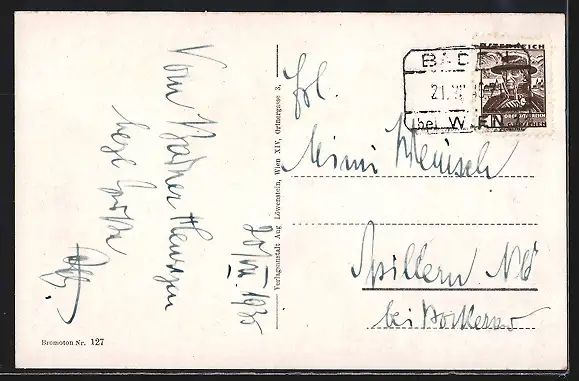 Vom Badner Heurigen
herzl. Grüße
20/VII. 1935
Verlagsanstalt Aug Löwenstein, Wien XIV, Ortnergasse 3,
ÖSTERREICH
BADEN
21. VII
(bei WIEN
Frl.
Mimi
Spillern NÖ
bei Stockerau
Bromoton Nr. 127